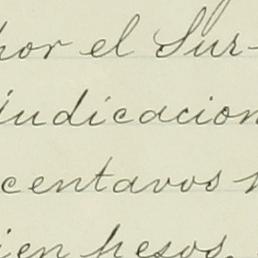 por el Sur-
judicacion
centavos
cien pesos.